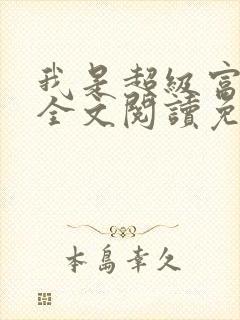 我是超級富
全文閱讀免
本島幸久